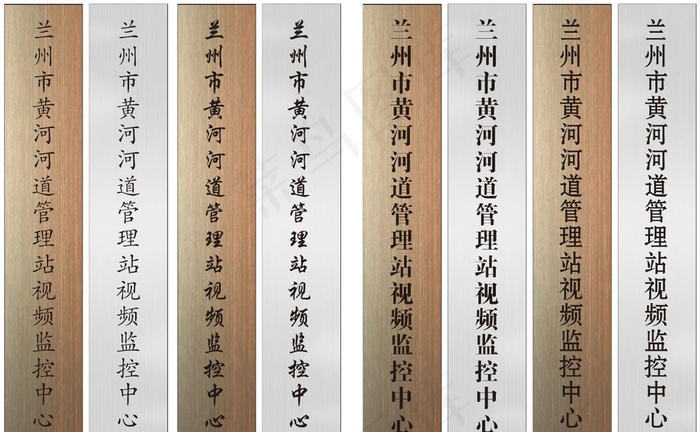 兰州市黄河河道管理站视频监控中心
兰州市黄河河道管理站视频监控中心
兰州市黄河河道管理站视频监控中心
兰州市黄河河道管理站视频监控中心
兰州市黄河河道管理站视频监控中心
兰州市黄河河道管理站视频监控中心
兰州市黄河河道管理站视频监控中心
兰州市黄河河道管理站视频监控中心